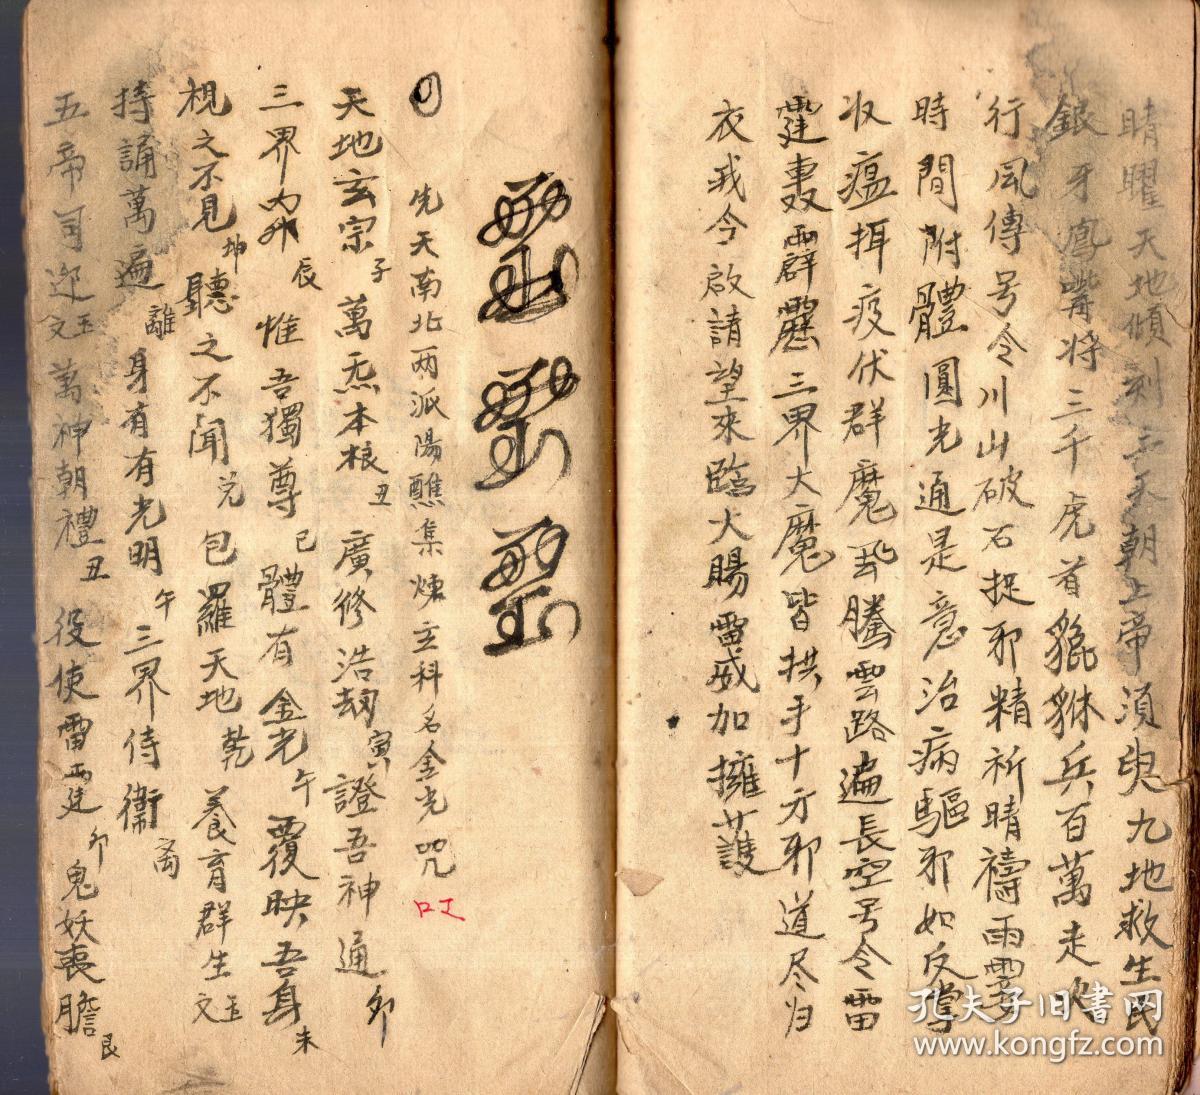 晴曜天地傾刹三天朝上帝須臾九地救生民
銀牙鳳嘴将三千虎首貔貅兵百萬走火
行風傳号令川山破石捉邪精祈晴禱雨雪
時間附體圓光通是意治病驅邪如反掌
収瘟捐疫伏群魔飛騰雲路遍長空号令雷
霆轟轟霹靂三界大魔皆拱手十方邪道尽归
衣我今啟請望來臨大賜雷威加擁護
先天南北两派陽醮集煉玄科名金光咒
天地玄宗子萬炁本根丑廣修浩劫寅證吾神通卯
三界内外辰惟吾獨尊巳體有金光午覆映吾身未
視之不見坤聽之不闻兑包羅天地乾養育群生玉文
持誦萬遍離身有有光明午三界侍衛离
五帝司迎玉文萬神朝禮丑役使雷霆卯鬼妖喪膽艮
孔夫子旧书网
www.kongfz.com